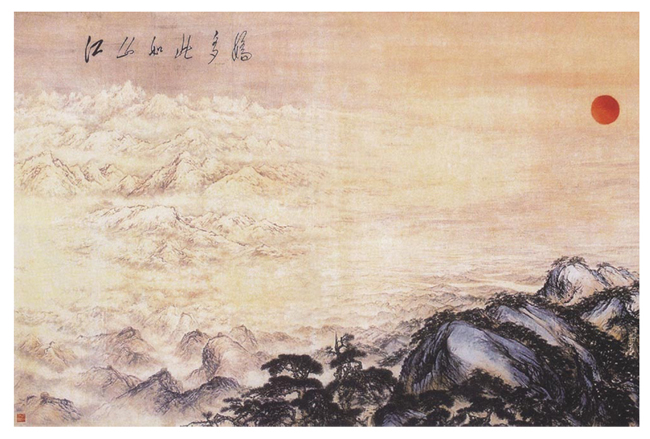 江山如此多嬌